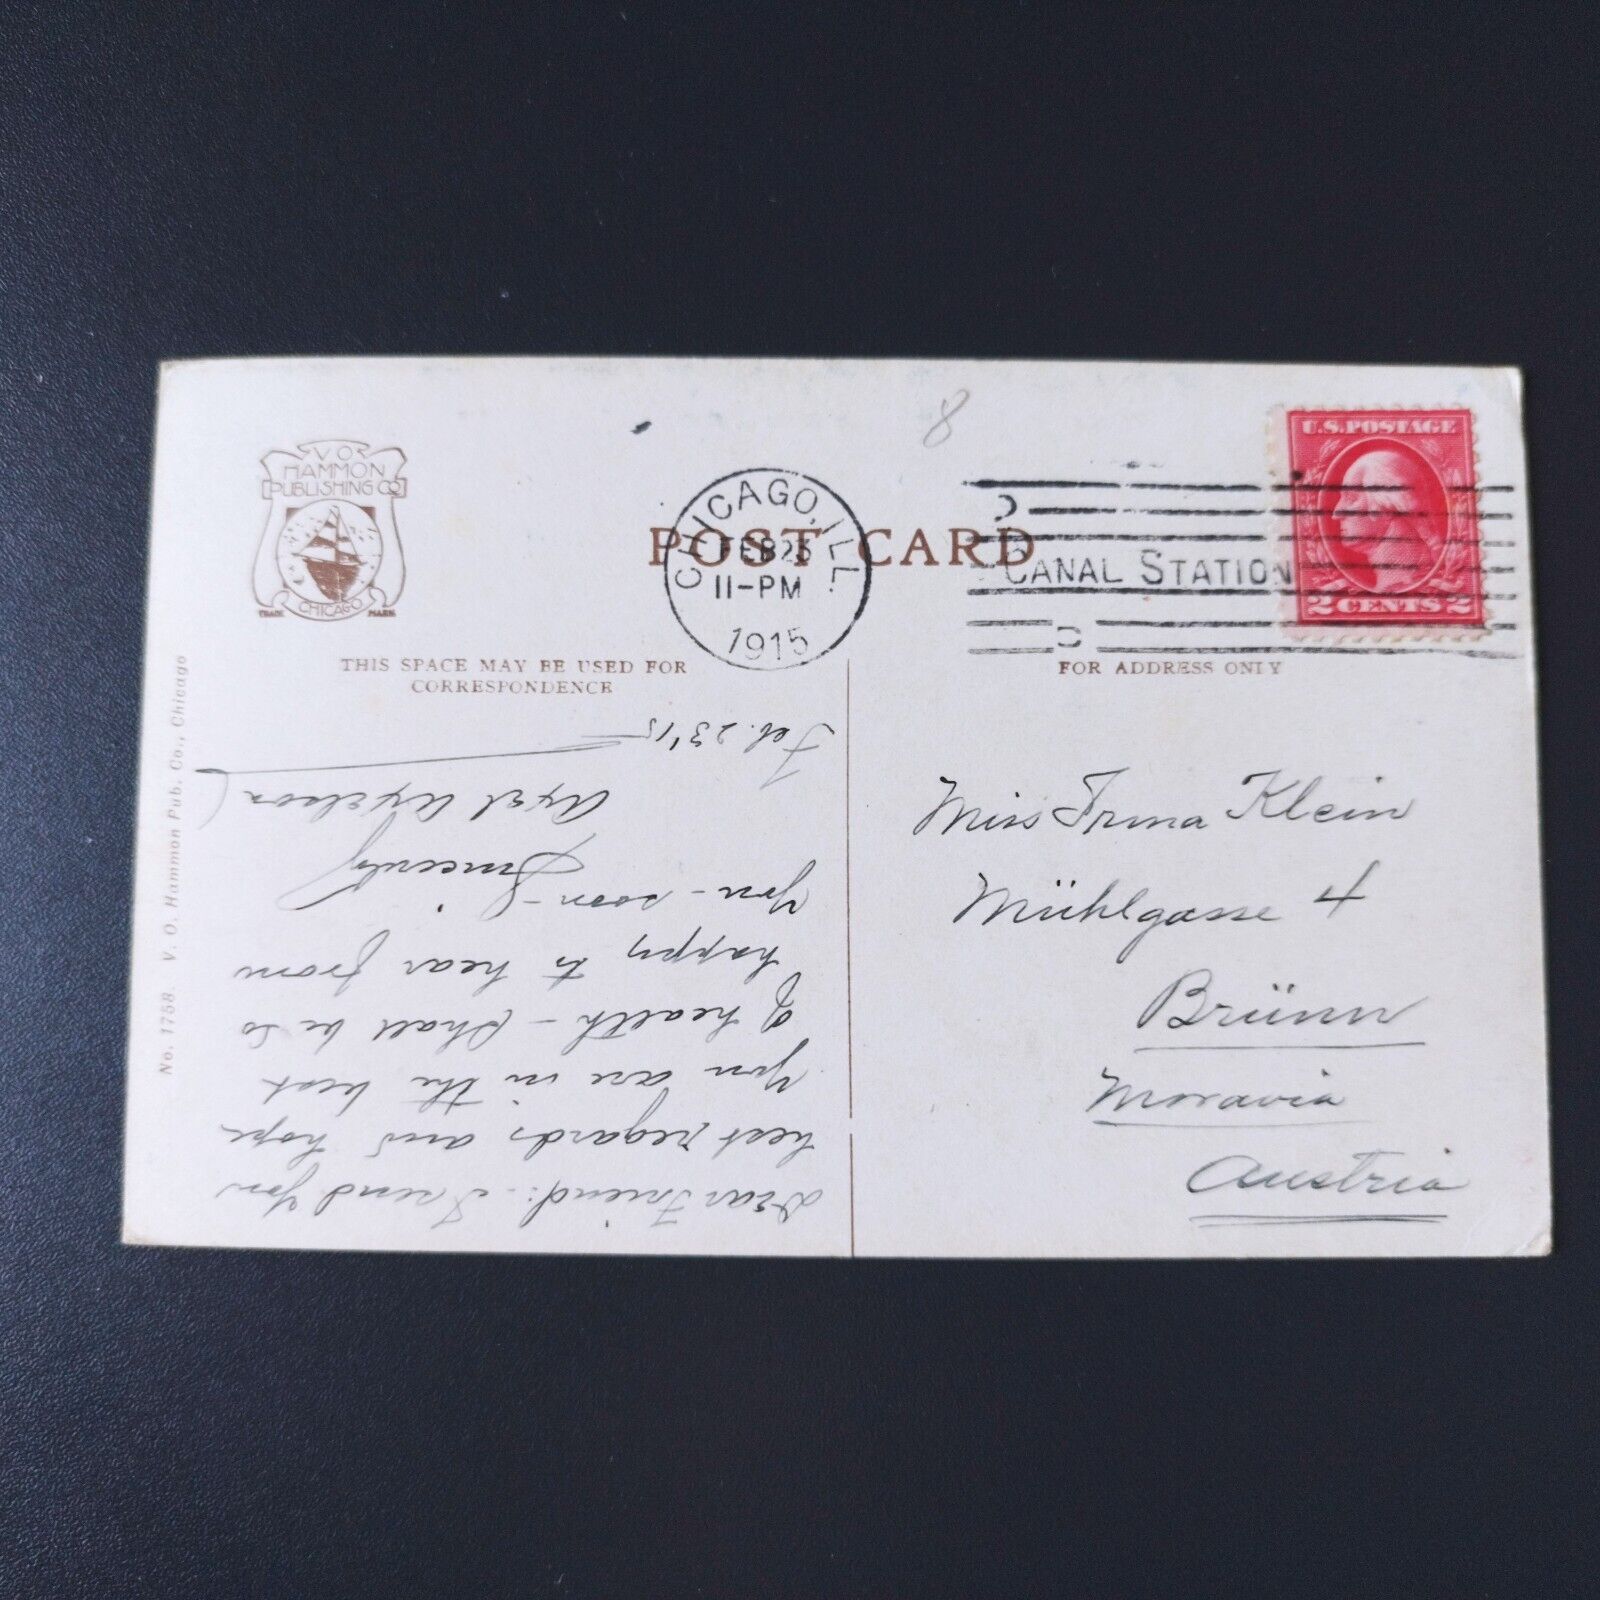 V. O.
HAMMON
PUBLISHING CO.
CHICAGO
TRADE MARK
POST CARD
CHICAGO, ILL.
FEB 23
11-PM
1915
CANAL STATION
U.S. POSTAGE
2 CENTS 2
8
THIS SPACE MAY BE USED FOR
CORRESPONDENCE
FOR ADDRESS ONLY
No. 1758. V. O. Hammon Pub. Co., Chicago
Dear Friend:- I send you
best regards and hope
you are in the best
of health - shall be so
happy to hear from
you - soon -
Sincerely
Axel Axelson
Feb. 23 '15
Miss Irma Klein
Mühlgasse 4
Brünn
Moravia
Austria